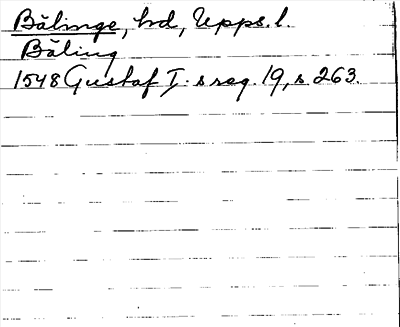 Bälinge, hd, Upps. l.
Bäling
1548 Gustaf I:s reg. 19, s 263.